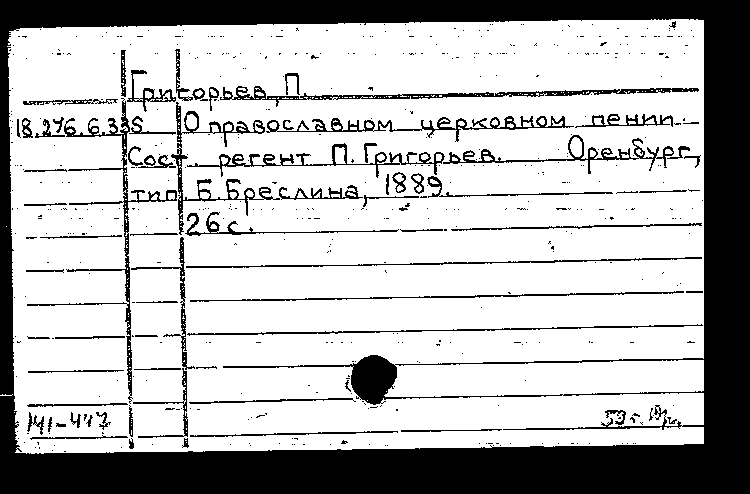 Григорьев, П.
18.276.6.335 О православном церковном пении.
Сост. регент П. Григорьев. Оренбург,
тип. Б. Бреслина, 1889.
26 с.
141-447 59 г.